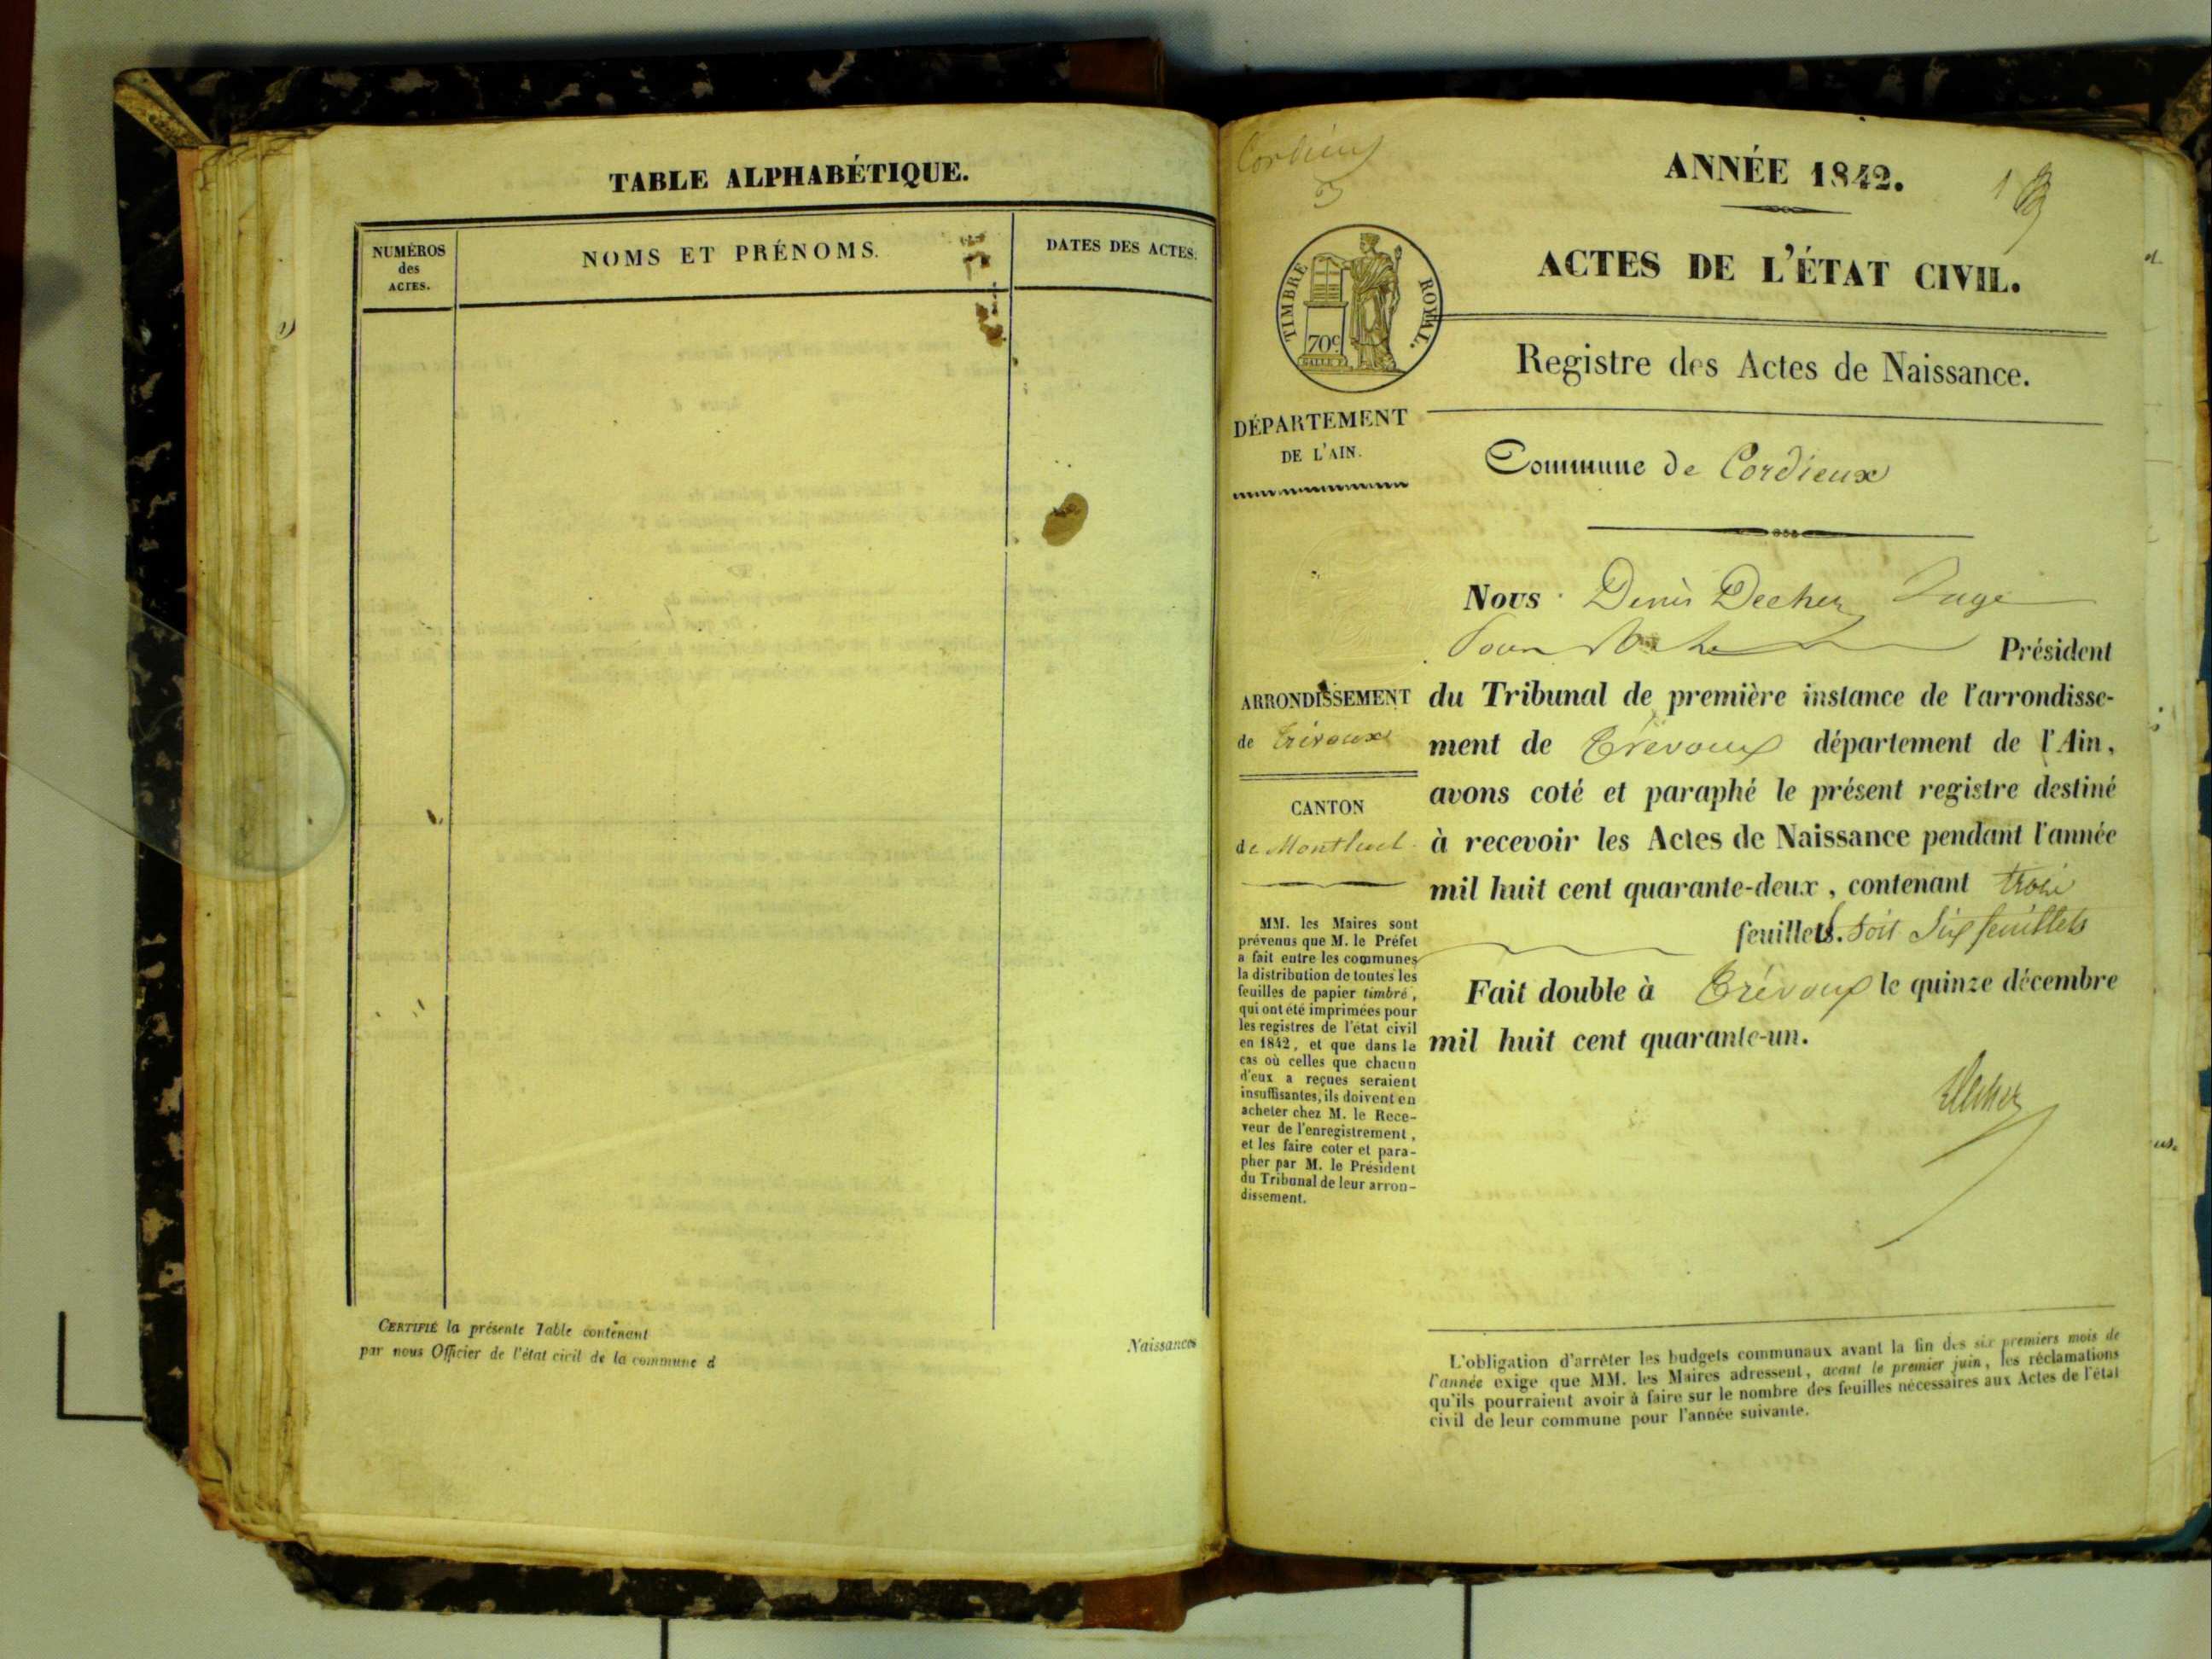 TABLE ALPHABÉTIQUE.
NUMÉROS
des
ACTES.
NOMS ET PRÉNOMS.
DATES DES ACTES.
CERTIFIÉ la présente Table contenant
par nous Officier de l'état civil de la commune d
Naissances
Cordieux
3
ANNÉE 1842.
1
TIMBRE ROYAL.
70c
ACTES DE L'ÉTAT CIVIL.
Registre des Actes de Naissance.
DÉPARTEMENT
DE L'AIN.
Commune de Cordieux
Nous Denis Decher Juge
Pour Président
ARRONDISSEMENT
de Trévoux
CANTON
de Montluel
du Tribunal de première instance de l'arrondisse-
ment de Trévoux département de l'Ain,
avons coté et paraphé le présent registre destiné
à recevoir les Actes de Naissance pendant l'année
mil huit cent quarante-deux, contenant trois
feuillets. soit Six feuillets
Fait double à Trévoux le quinze décembre
mil huit cent quarante-un.
Decher
MM. les Maires sont
prévenus que M. le Préfet
a fait entre les communes
la distribution de toutes les
feuilles de papier timbré,
qui ont été imprimées pour
les registres de l'état civil
en 1842, et que dans le
cas où celles que chacun
d'eux a reçues seraient
insuffisantes, ils doivent en
acheter chez M. le Rece-
veur de l'enregistrement,
et les faire coter et para-
pher par M. le Président
du Tribunal de leur arron-
dissement.
L'obligation d'arrêter les budgets communaux avant la fin des six premiers mois de
l'année exige que MM. les Maires adressent, avant le premier juin, les réclamations
qu'ils pourraient avoir à faire sur le nombre des feuilles nécessaires aux Actes de l'état
civil de leur commune pour l'année suivante.